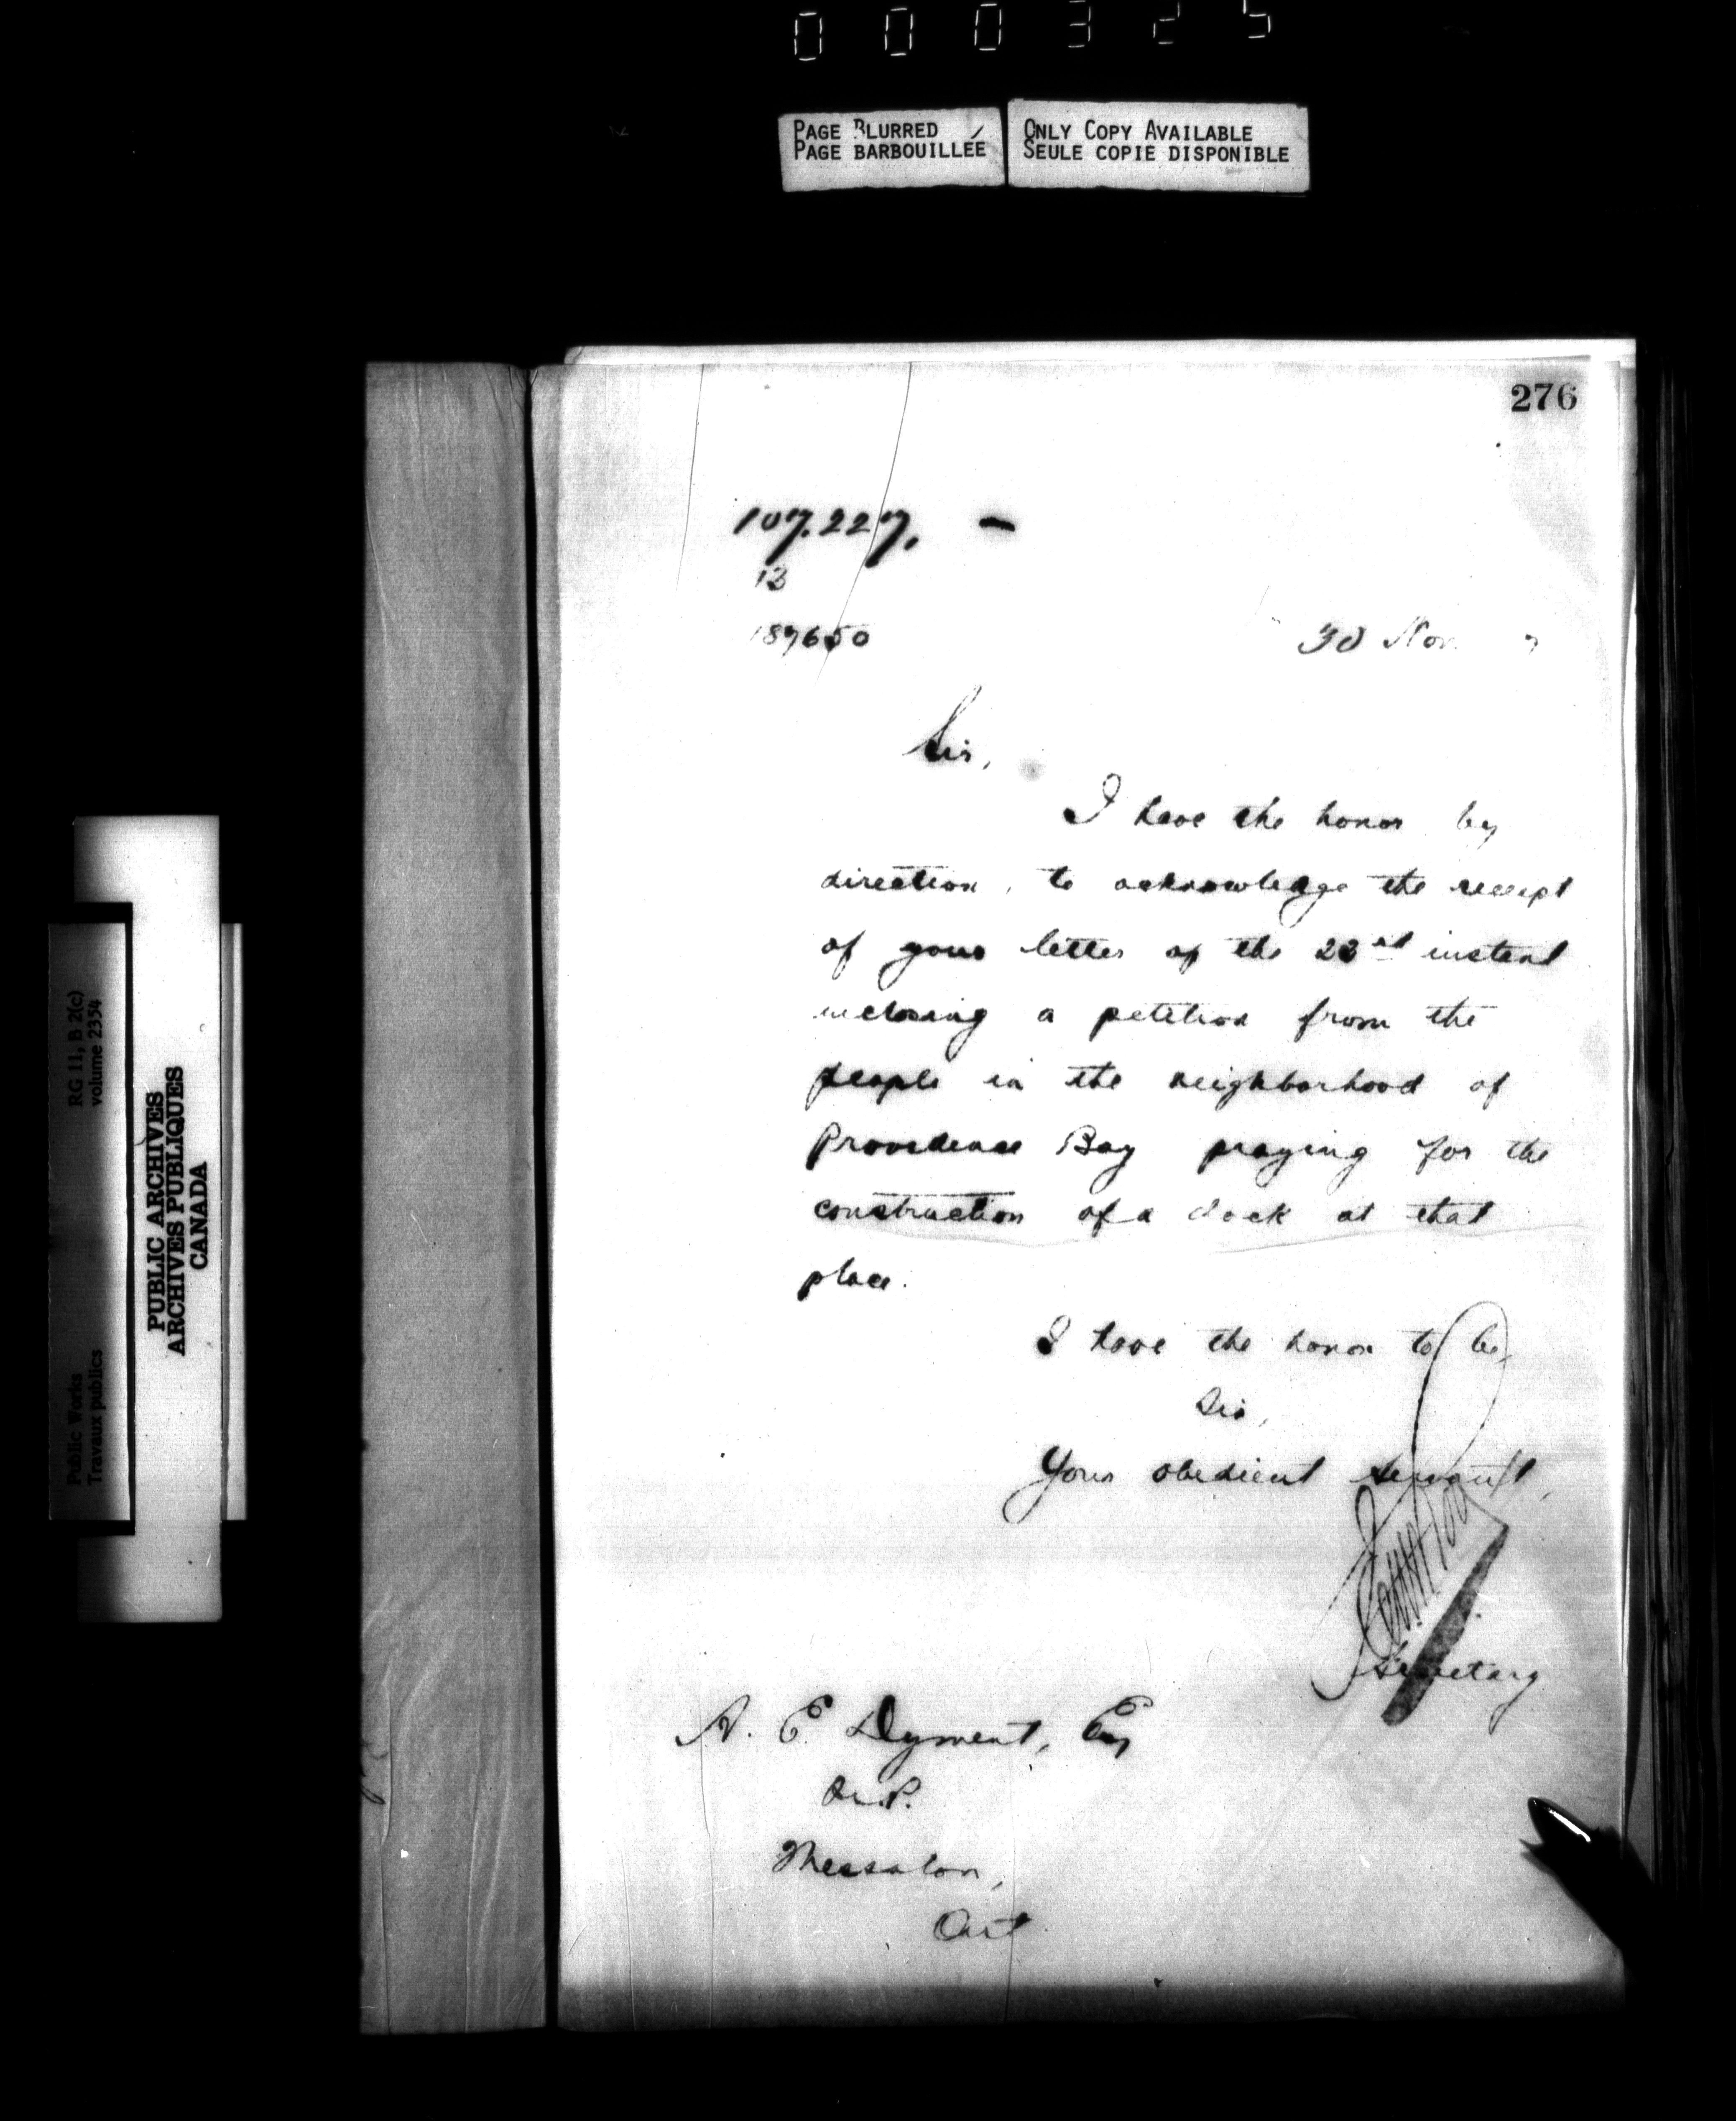 000325
PAGE BLURRED
PAGE BARBOUILLÉE
ONLY COPY AVAILABLE
SEULE COPIE DISPONIBLE
276
107.227, -
13
187650
30 Nov. 7
Sir,
I have the honor by
direction, to acknowledge the receipt
of your letter of the 22nd instant
inclosing a petition from the
people in the neighborhood of
Providence Bay praying for the
construction of a dock at that
place.
I have the honor to be,
Sir,
Your obedient servant,
Secretary
A. E. Dyment, Esq
M.P.
Thessalon,
Ont
RG 11, B 2(c)
volume 2354
Public Works
Travaux publics
PUBLIC ARCHIVES
ARCHIVES PUBLIQUES
CANADA